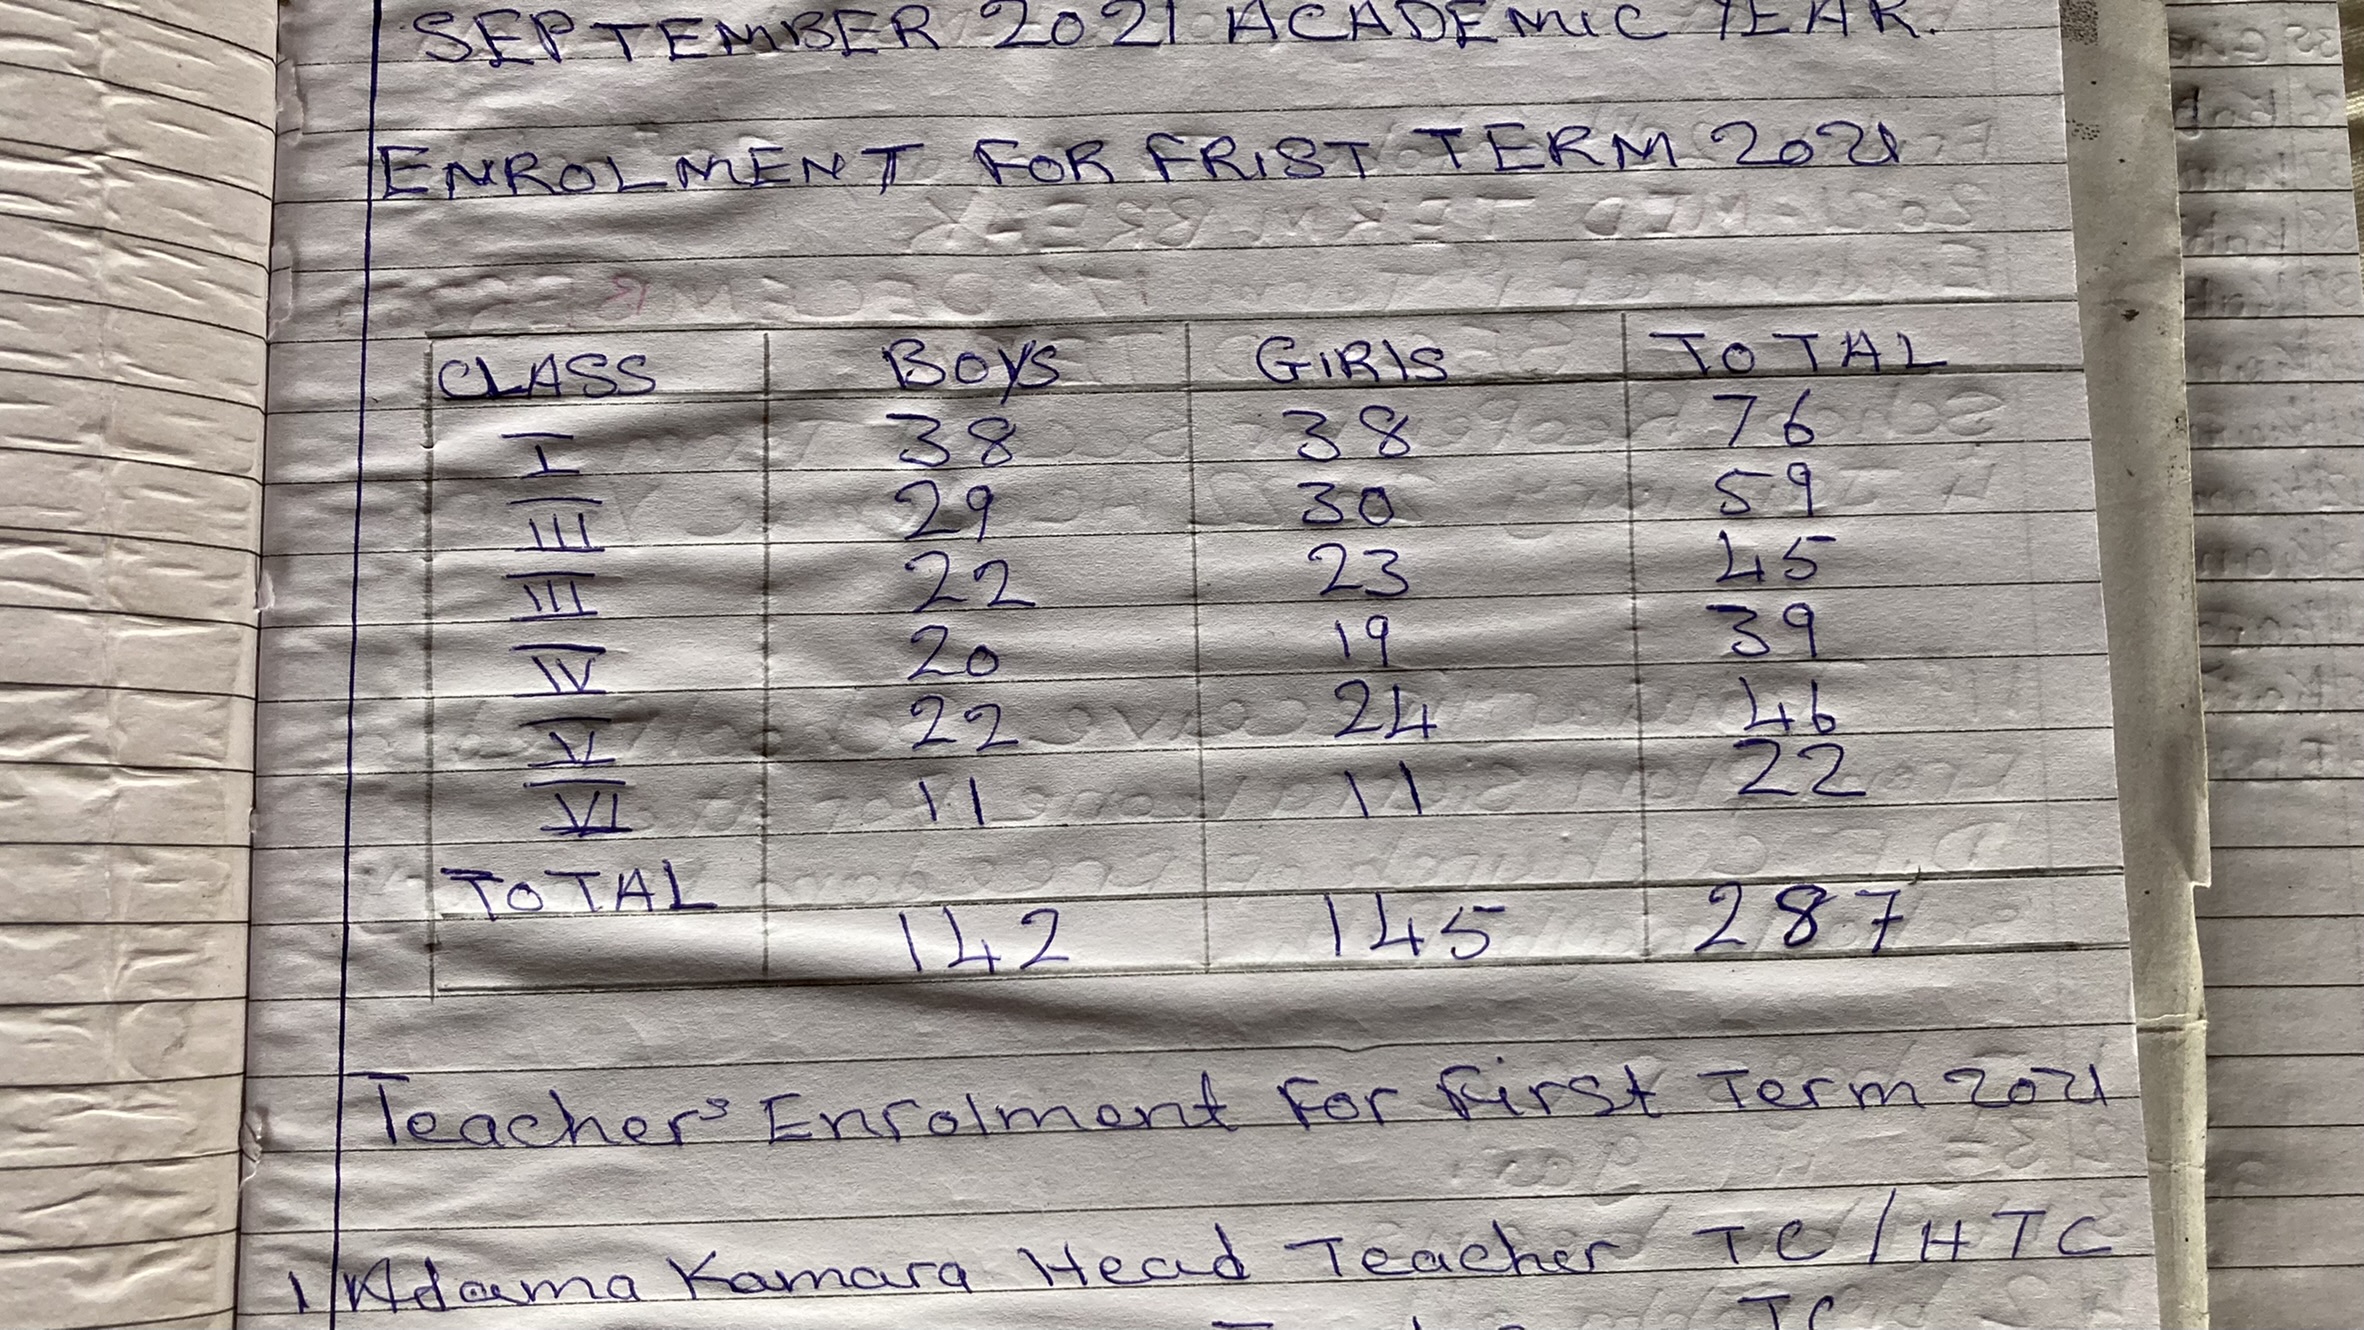 SEPTEMBER 2021 ACADEMIC YEAR.
ENROLMENT FOR FRIST TERM 2021
CLASS BOYS GIRLS TOTAL
I 38 38 76
III 29 30 59
III 22 23 45
IV 20 19 39
V 22 24 46
VI 11 11 22
TOTAL 142 145 287
Teachers Enrolment For First Term 2021
1 Adama Kamara Head Teacher TC/HTC
TC